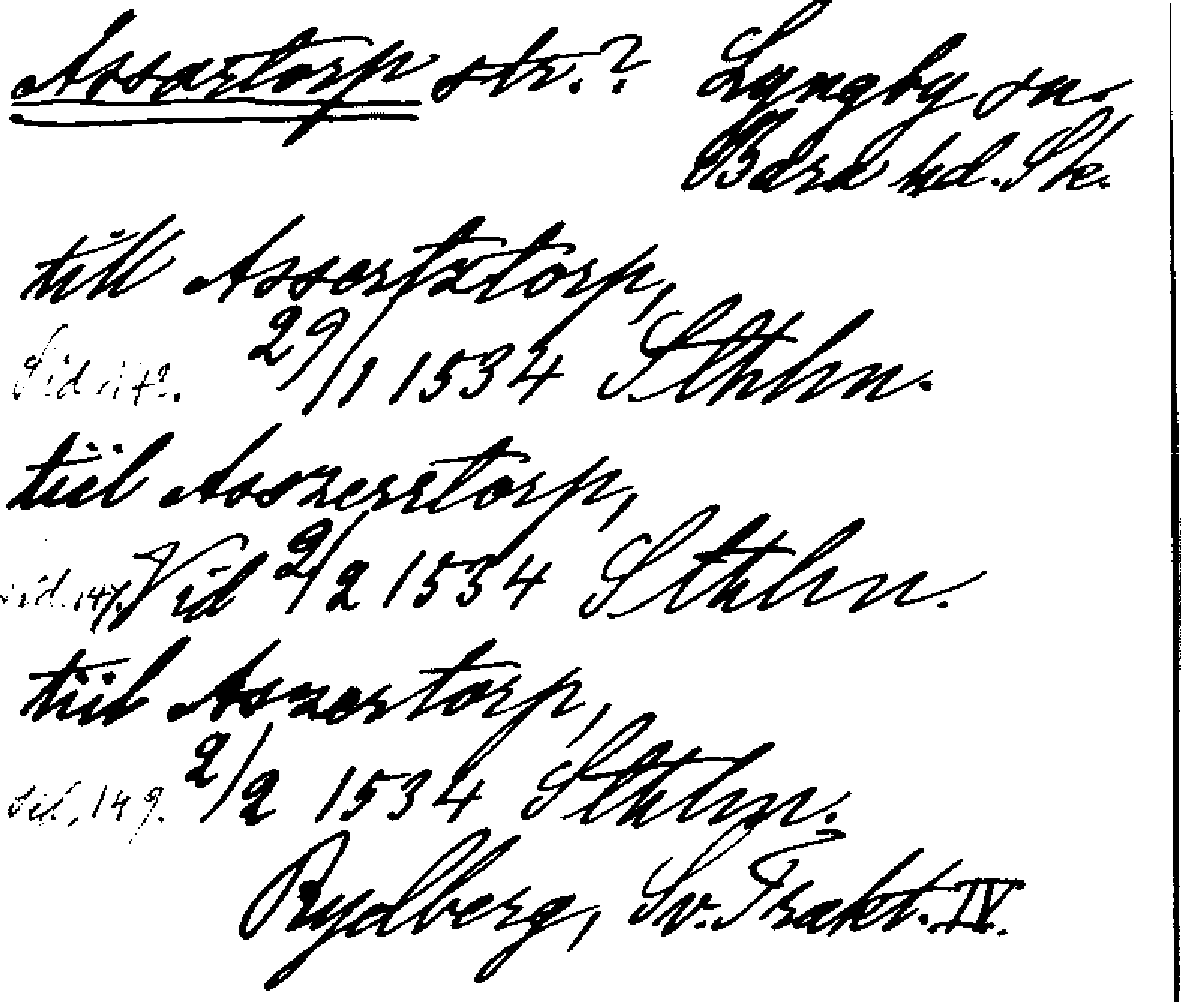 Assartorp str.? Lyngby sn.
Bara hd. Sk.
till Assertztorp,
Sid. 142. 29/1 1534 Sthlm.
tiil Asszerstorp,
sid. 147. Vid 2/2 1534 Sthlm.
tiil Aszerstorp,
sid. 149. 2/2 1534 Sthlm.
Rydberg, Sv. Trakt. IV.